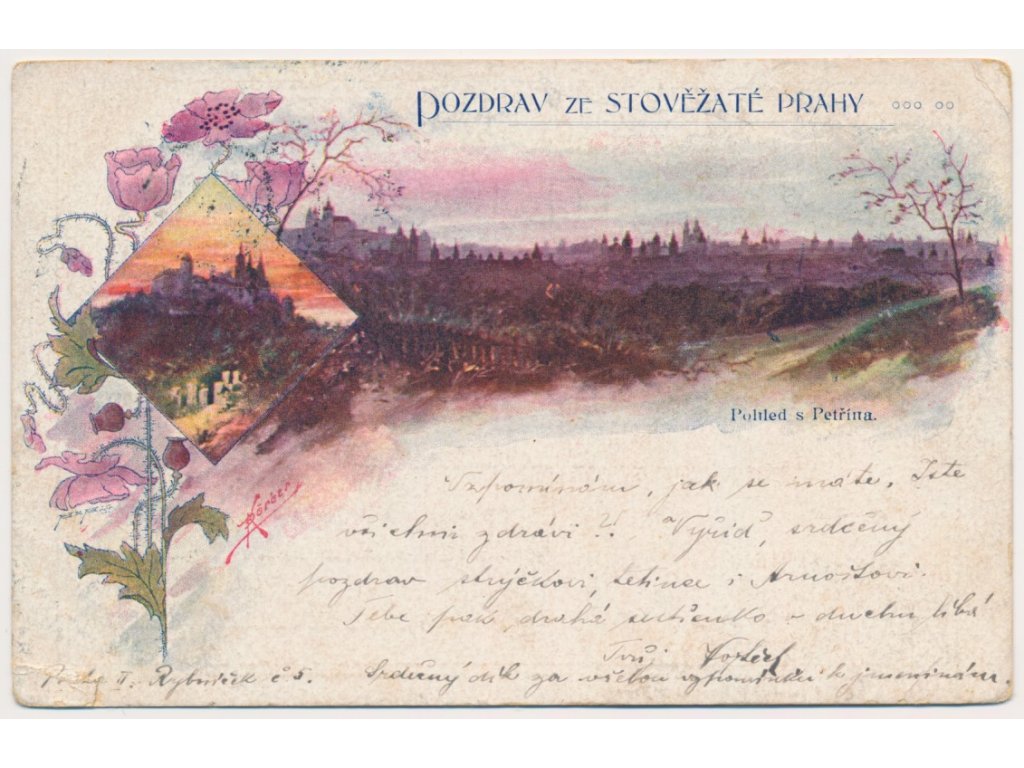 POZDRAV ZE STOVĚŽATÉ PRAHY
Pohled s Petřína.
Körber
Vzpomínám, jak se máte. Jste
všichni zdrávi?! Vyřiď srdečný
pozdrav strýčkovi, tetince i Arnoštovi.
Tebe pak drahá sestřenko v duchu líbá
Tvůj
Praha II. Rybníček č 5. Srdečný dík za všelou vzpomínku k jmeninám.